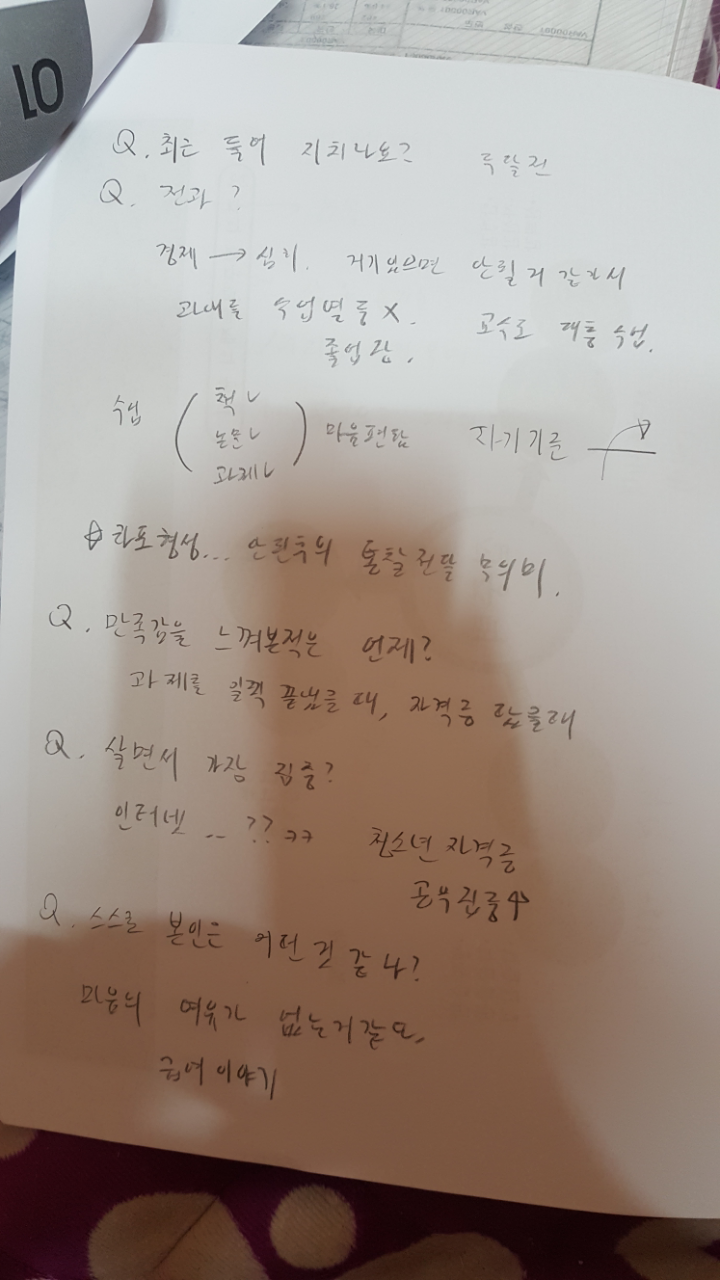 01
Q. 최근 들어 지치나요? 두달전
Q. 전과?
경제 → 심리. 거기있으면 안될거 같아서
과내를 수업별등 X. 교수도 대충 수업.
졸업만,
수업 ( 책 ✓ 논문 ✓ 과제 ✓ ) 마음편함 자기기준
☆ 라포형성... 안된후의 통찰전달 무의미.
Q. 만족감을 느껴본적은 언제?
과제를 일찍 끝냈을때, 자격증 땄을때
Q. 살면서 가장 집중?
인터넷 .. ?? ㅋㅋ 청소년 자격증
공부집중↑
Q. 스스로 본인은 어떤것 같나?
마음의 여유가 없는거같도,
이야기